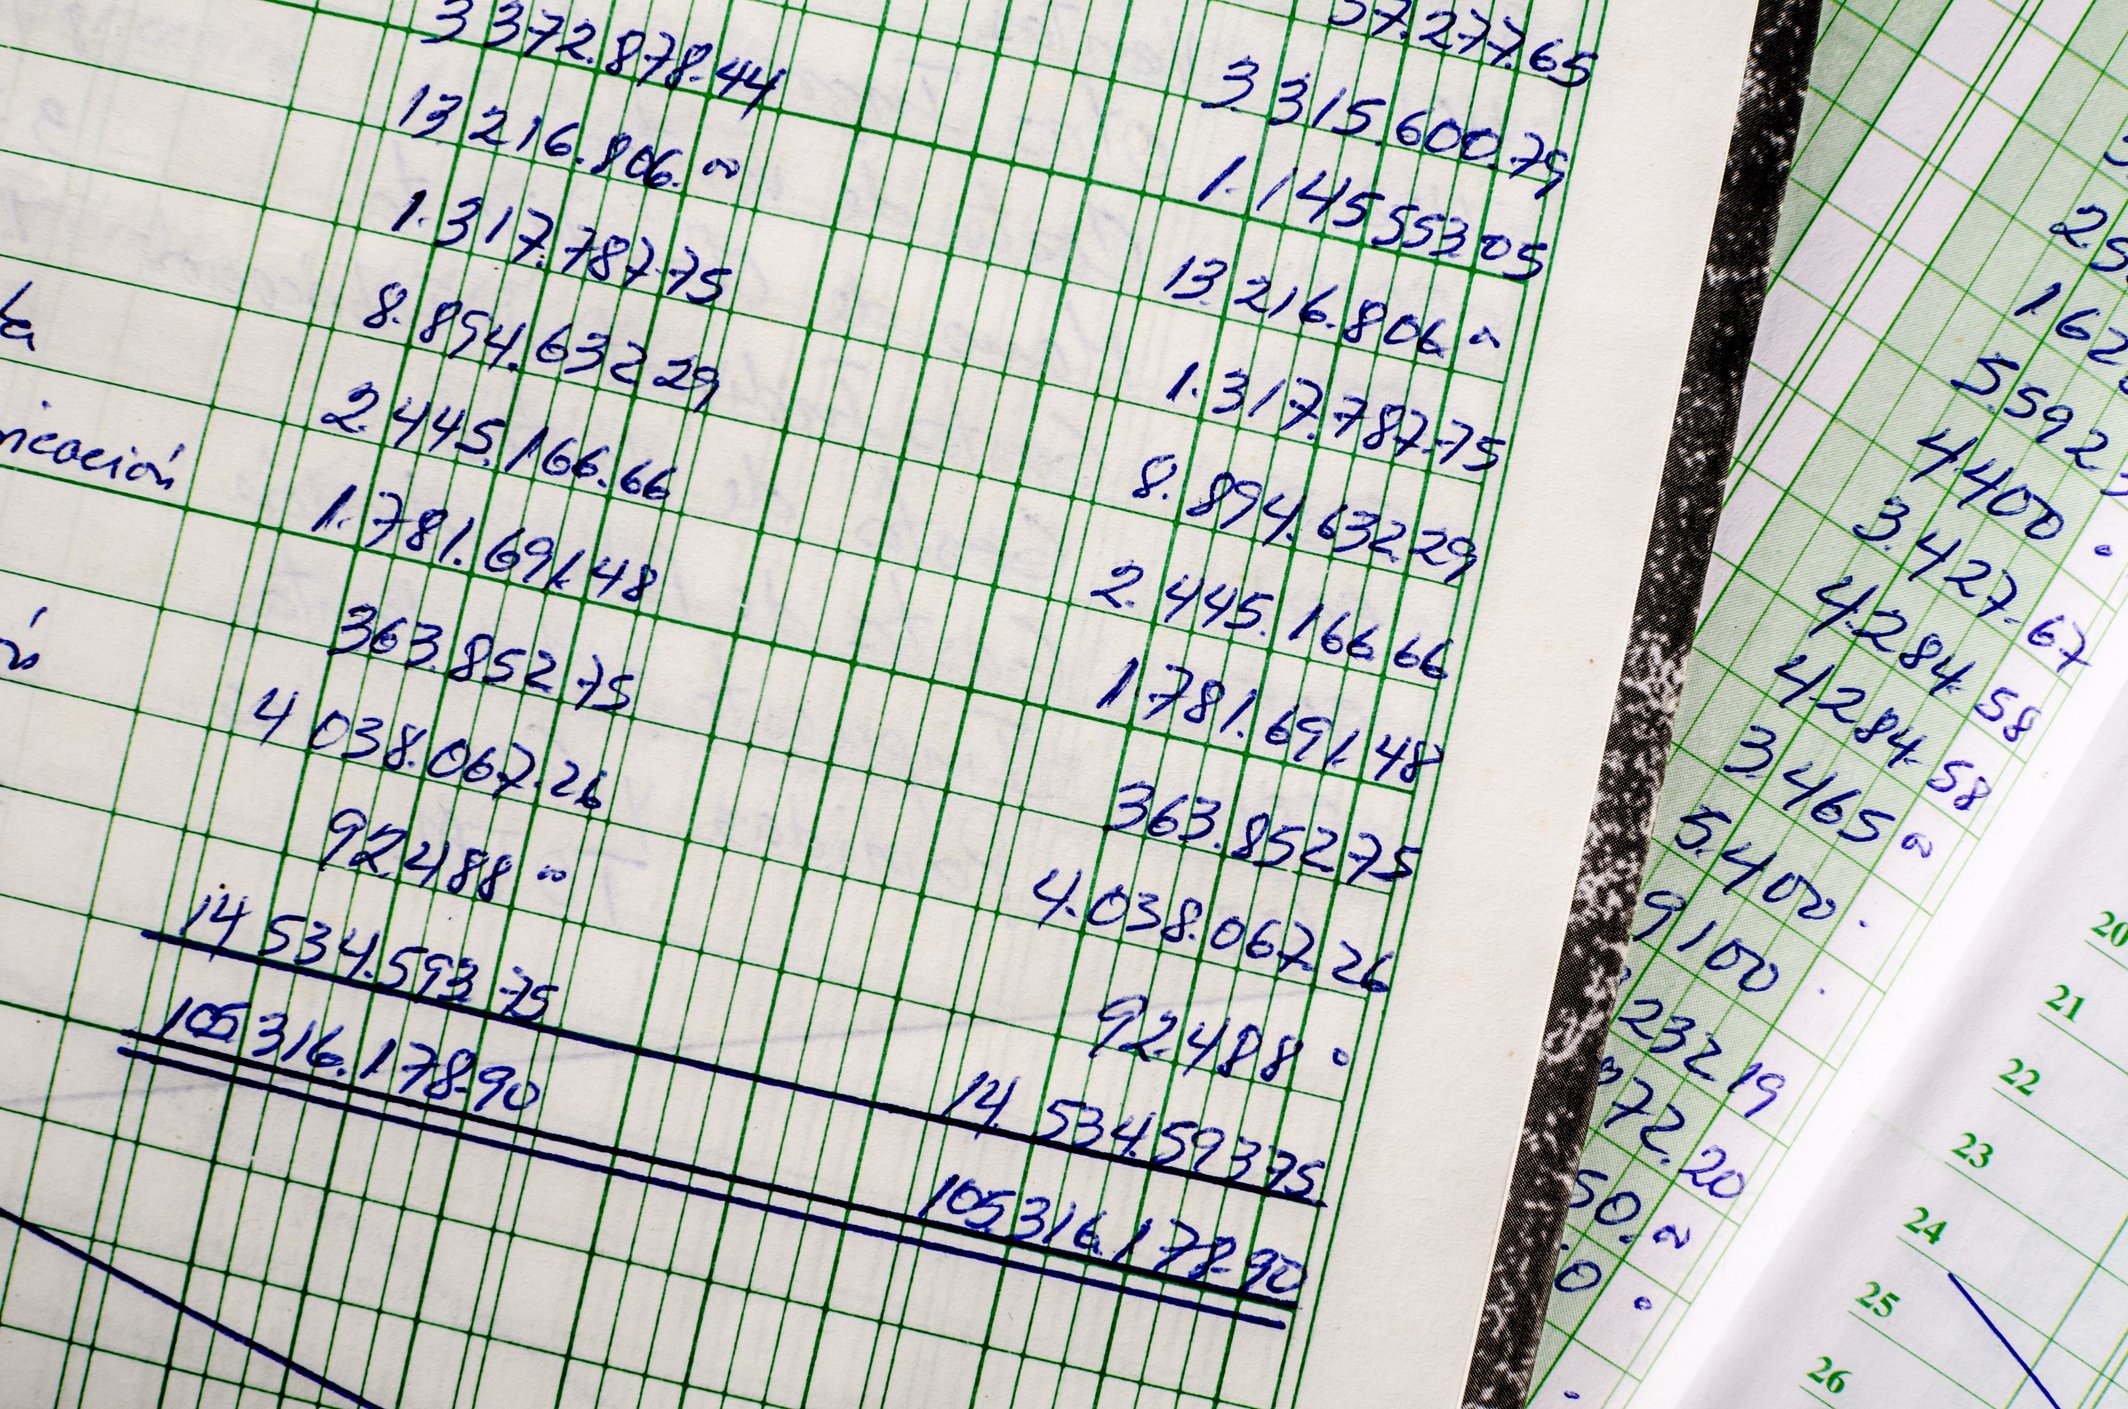 3 372.878.44
13 216.806.00
1.317.787.75
8.894.632 29
2.445.166.66
icación
1.781.691.48
363.852 75
4 038.067.26
92.488 00
14 534.593 75
105 316.178.90
57.277.65
3.315.600.79
1.145 553 05
13.216.806 00
1.317.787.75
8.894.632.29
2.445.166 66
1.781.691.48
363.852 75
4.038.067.26
92.488 0
14.534.593 75
105.316.178.90
4400
3.427.67
4.284.58
4284.58
3.465 00
5.400
9100
232.19
72.20
50.00
20
21
22
23
24
25
26